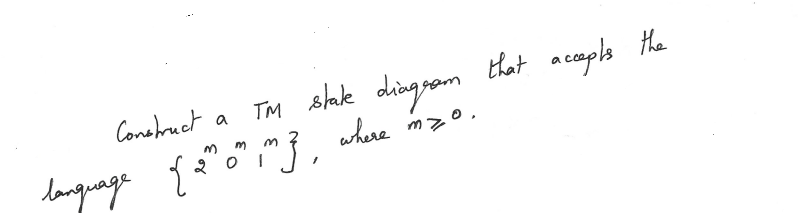 Construct a TM state diagram that accepts the
language {2^m 0^m 1^m}, where m ≥ 0.